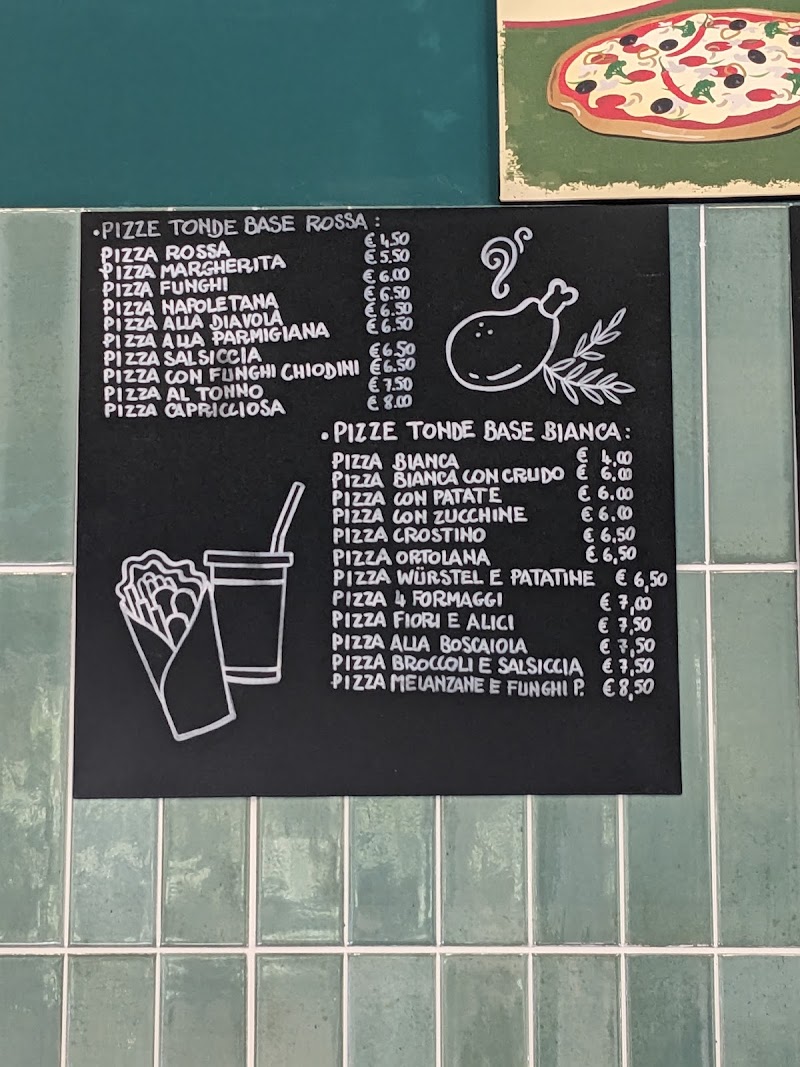 • PIZZE TONDE BASE ROSSA :
PIZZA ROSSA € 4.50
PIZZA MARGHERITA € 5.50
PIZZA FUNGHI € 6.00
PIZZA NAPOLETANA € 6.50
PIZZA ALLA DIAVOLA € 6.50
PIZZA ALLA PARMIGIANA € 6.50
PIZZA SALSICCIA € 6.50
PIZZA CON FUNGHI CHIODINI € 6.50
PIZZA AL TONNO € 7.50
PIZZA CAPRICCIOSA € 8.00
• PIZZE TONDE BASE BIANCA :
PIZZA BIANCA € 4,00
PIZZA BIANCA CON CRUDO € 6.00
PIZZA CON PATATE € 6.00
PIZZA CON ZUCCHINE € 6.00
PIZZA CROSTINO € 6.50
PIZZA ORTOLANA € 6,50
PIZZA WÜRSTEL E PATATINE € 6,50
PIZZA 4 FORMAGGI € 7,00
PIZZA FIORI E ALICI € 7,50
PIZZA ALLA BOSCAIOLA € 7,50
PIZZA BROCCOLI E SALSICCIA € 7,50
PIZZA MELANZANE E FUNGHI P. € 8,50